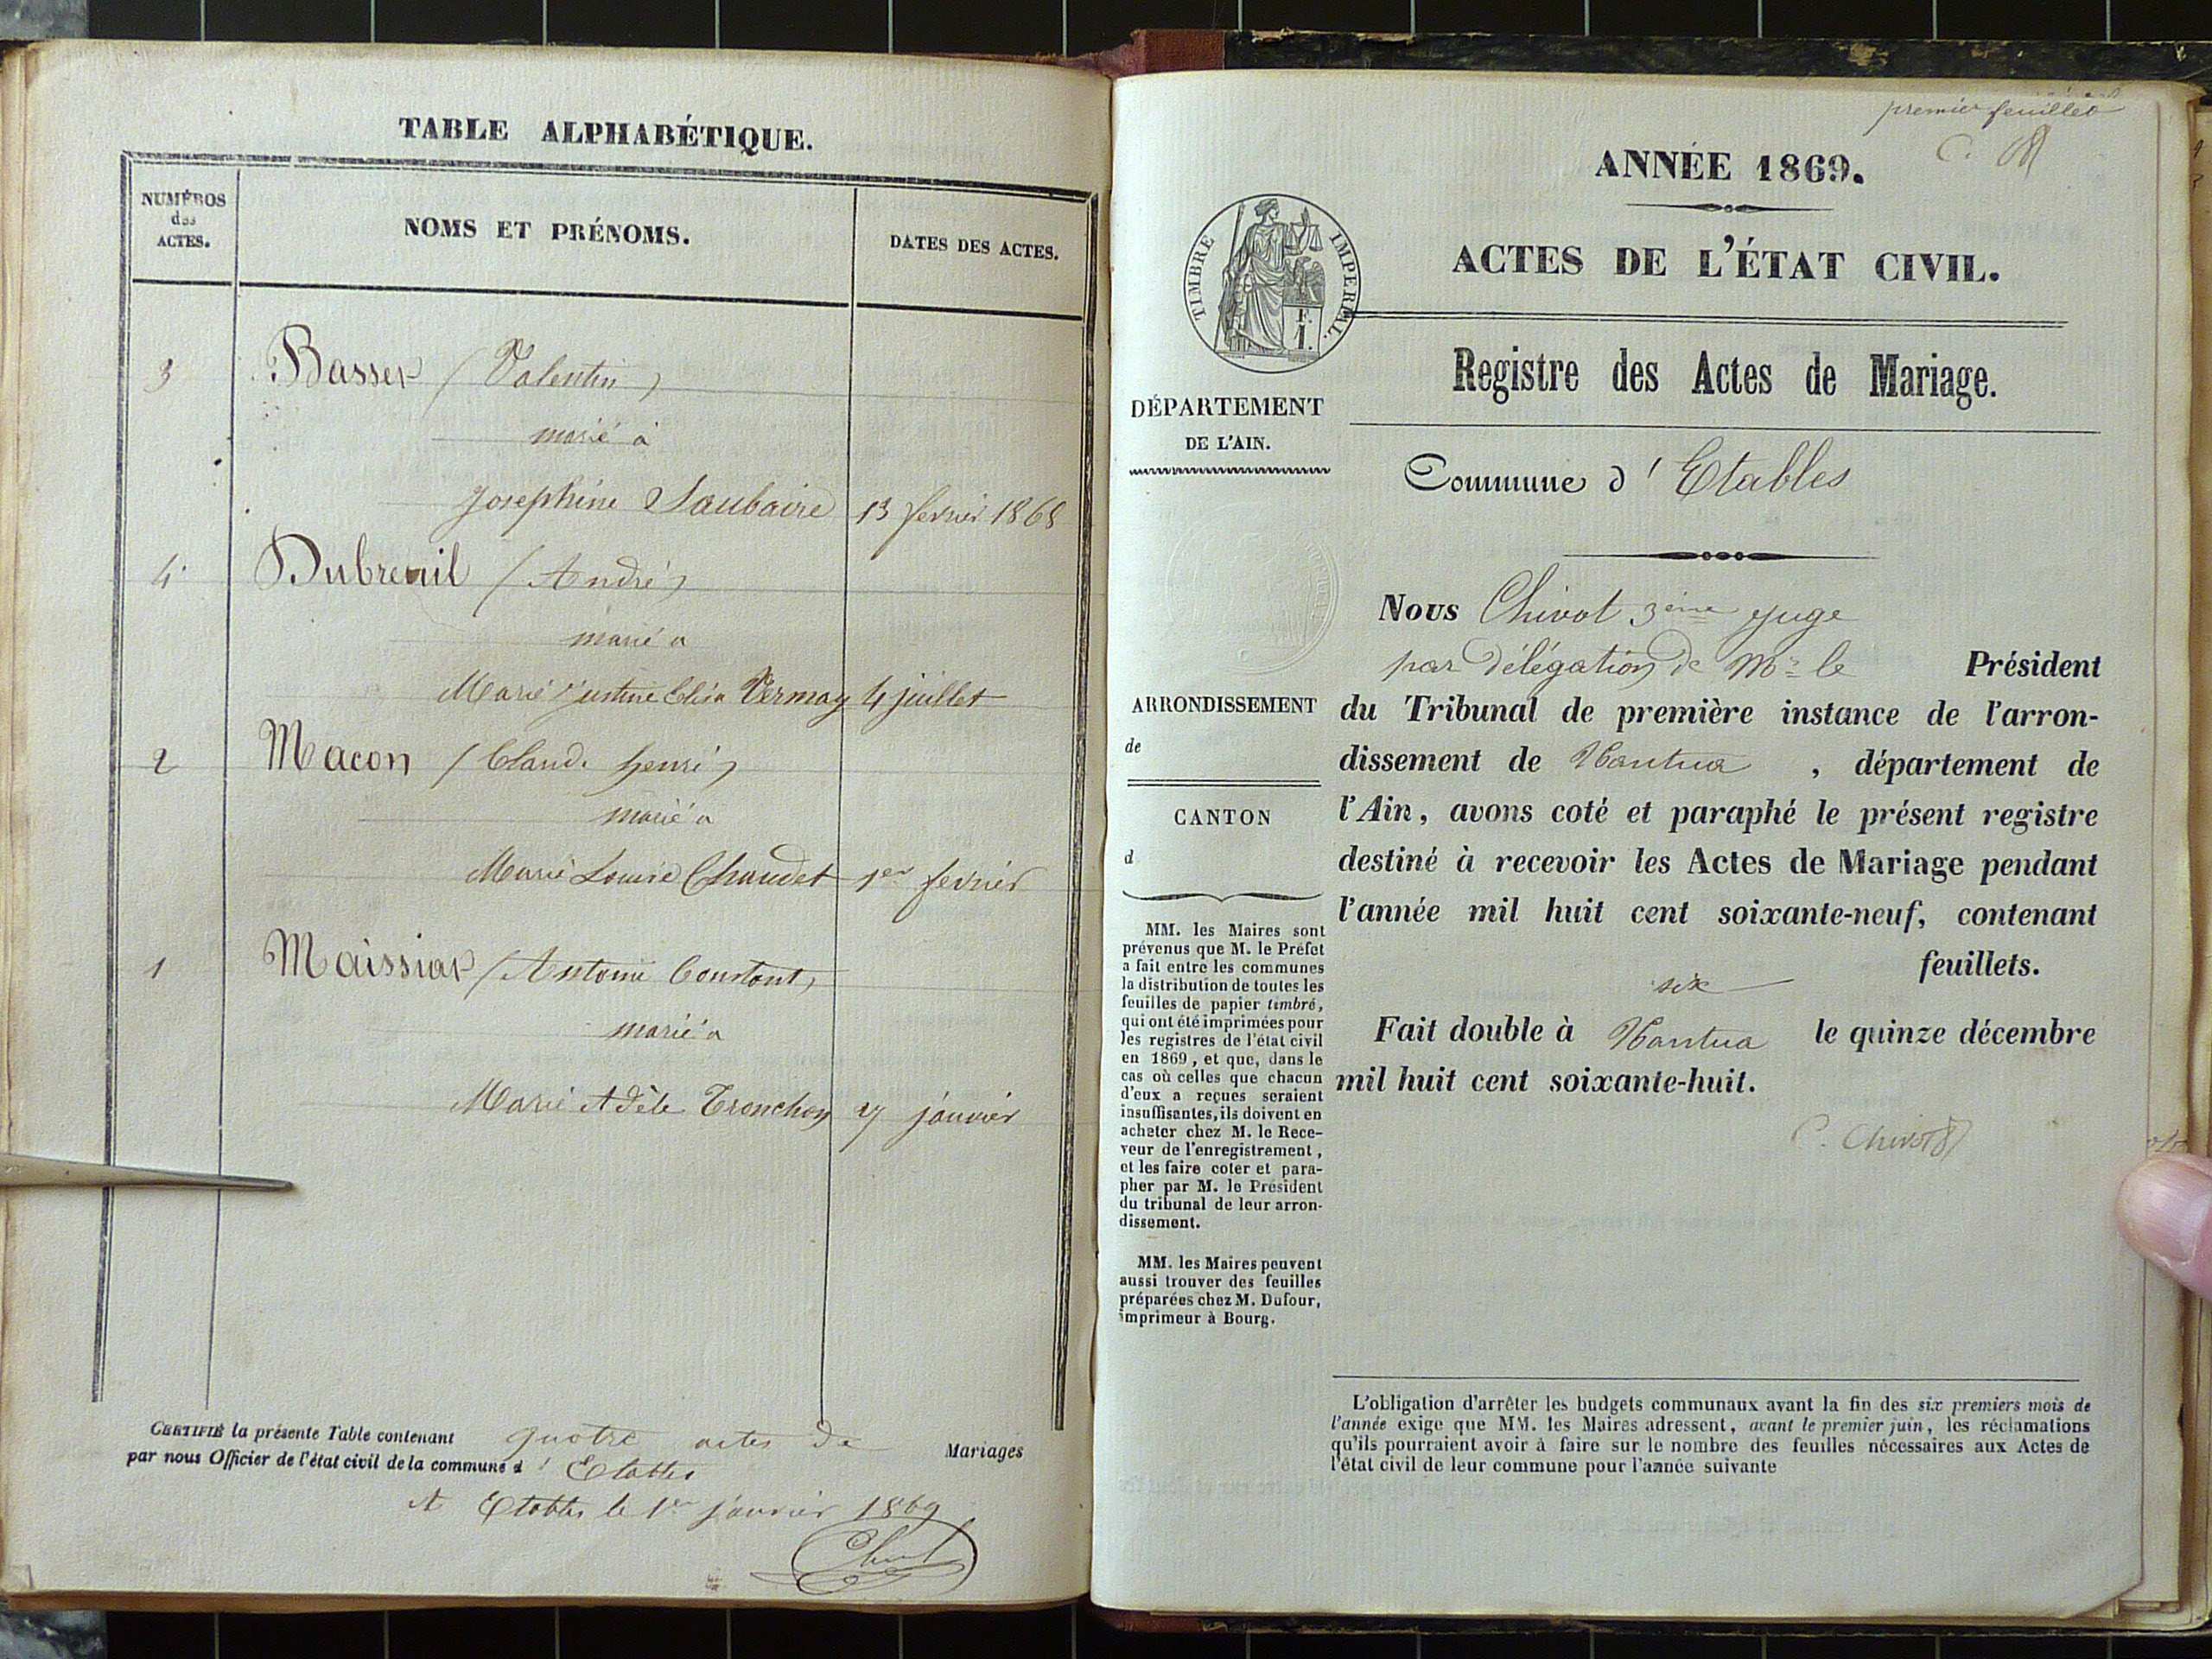 TABLE ALPHABÉTIQUE.
NUMÉROS
des
ACTES.
NOMS ET PRÉNOMS.
DATES DES ACTES.
3 Basset (Valentin)
marié à
Josephine Saubaire 13 fevrier 1868
4 Dubreuil (André)
marié a
Marie Justine Elisa Vermay 4 juillet
2 Macon (Claude henri)
marié a
Marie Louise Chaudet 1er fevrier
1 Maissiat (Antoine Constant)
marié a
Marie Adèle Tronchon 27 janvier
CERTIFIÉ la présente Table contenant quatre actes de Mariages
par nous Officier de l'état civil de la commune d'Etables
A Etables le 1er janvier 1869
premier feuillet
ANNÉE 1869.
TIMBRE IMPÉRIAL.
ACTES DE L'ÉTAT CIVIL.
Registre des Actes de Mariage.
DÉPARTEMENT
DE L'AIN.
Commune d'Etables
ARRONDISSEMENT
de
CANTON
d
Nous Chivot 3ème Juge
par délégation de Mr le Président
du Tribunal de première instance de l'arron-
dissement de Nantua, département de
l'Ain, avons coté et paraphé le présent registre
destiné à recevoir les Actes de Mariage pendant
l'année mil huit cent soixante-neuf, contenant
six feuillets.
Fait double à Nantua le quinze décembre
mil huit cent soixante-huit.
C. Chivot
MM. les Maires sont
prévenus que M. le Préfet
a fait entre les communes
la distribution de toutes les
feuilles de papier timbré,
qui ont été imprimées pour
les registres de l'état civil
en 1869, et que, dans le
cas où celles que chacun
d'eux a reçues seraient
insuffisantes, ils doivent en
acheter chez M. le Rece-
veur de l'enregistrement,
et les faire coter et para-
pher par M. le Président
du tribunal de leur arron-
dissement.
MM. les Maires peuvent
aussi trouver des feuilles
préparées chez M. Dufour,
imprimeur à Bourg.
L'obligation d'arrêter les budgets communaux avant la fin des six premiers mois de
l'année exige que MM. les Maires adressent, avant le premier juin, les réclamations
qu'ils pourraient avoir à faire sur le nombre des feuilles nécessaires aux Actes de
l'état civil de leur commune pour l'année suivante